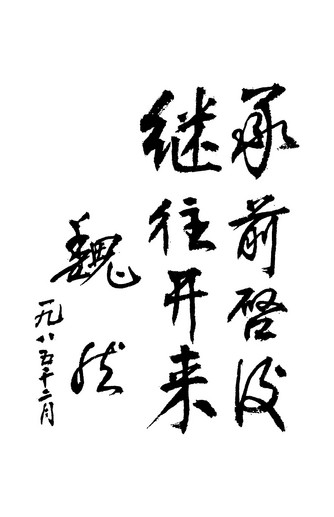 承前啓後
继往开来
魏
一九八五年二月